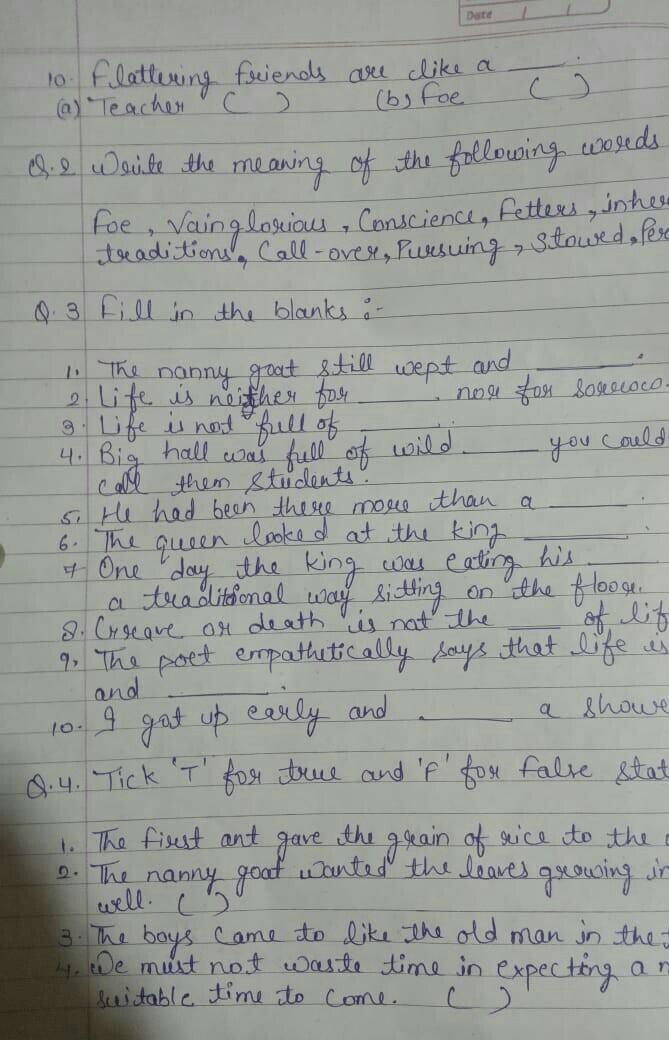 Date
10. Flattering friends are like a ____.
(a) Teacher ( ) (b) Foe ( )
Q.2 Write the meaning of the following words
Foe, Vainglorious, Conscience, Fetters, inher
traditions, Call-over, Pursuing, Stowed, Per
Q.3 Fill in the blanks :-
1. The nanny goat still wept and ____.
2. Life is neither for ____, nor for sorrow.
3. Life is not full of ____.
4. Big hall was full of wild ____ you could
call them students.
5. He had been there more than a ____.
6. The queen looked at the king ____.
7. One day the king was eating his ____
a traditional way sitting on the floor.
8. Grave or death is not the ____ of lif
9. The poet empathetically says that life is
and ____.
10. I got up early and ____ a showe
Q.4. Tick 'T' for true and 'F' for false stat
1. The first ant gave the grain of rice to the
2. The nanny goat wanted the leaves growing in
well. ( )
3. The boys came to like the old man in the
4. We must not waste time in expecting a
suitable time to come. ( )